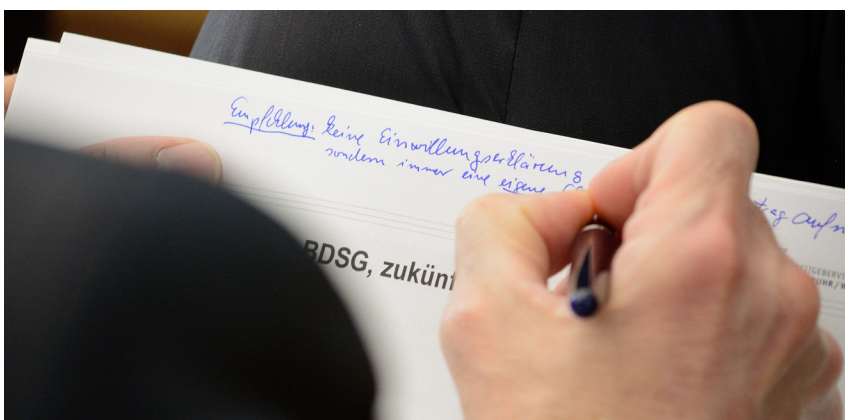 Empfehlung: keine Einwilligungserklärung
sondern immer eine eigene
BDSG, zukünf